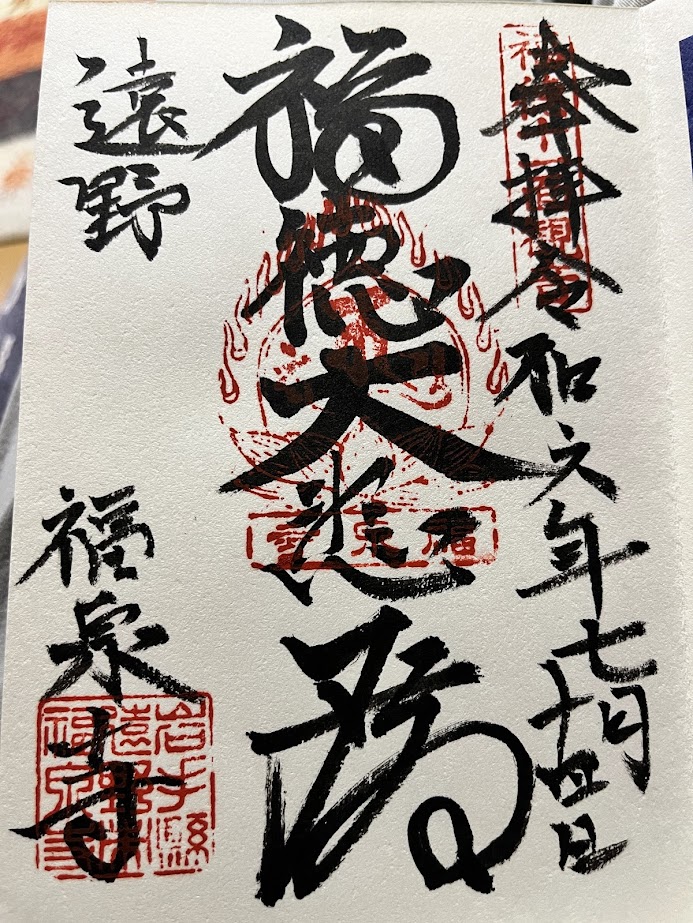 奉拝 令和六年七月十四日
福徳大悲
遠野 福泉寺
福泉寺
岩手縣
遠野郷
福泉寺